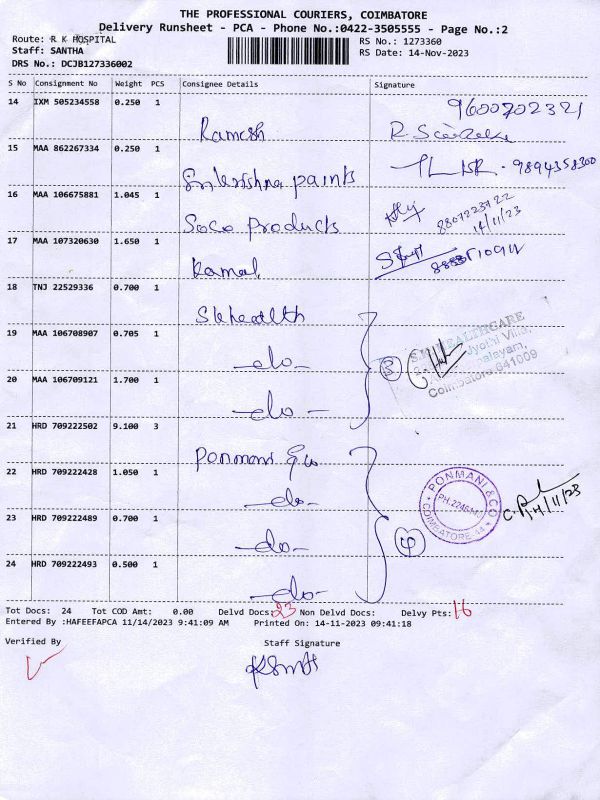 THE PROFESSIONAL COURIERS, COIMBATORE
Delivery Runsheet - PCA - Phone No.:0422-3505555 - Page No.:2
Route: R K HOSPITAL
Staff: SANTHA
DRS No.: DCJB127336002
RS No.: 1273360
RS Date: 14-Nov-2023
S No Consignment No Weight PCS Consignee Details Signature
14 IXM 505234558 0.250 1
9600702321
Ramesh
15 MAA 862267334 0.250 1
9894358300
Srikrishna paints
16 MAA 106675881 1.045 1
8807223722
14/11/23
SoCo Products
17 MAA 107320630 1.650 1
Kamal
18 TNJ 22529336 0.700 1
Sk health
19 MAA 106708907 0.705 1
-do-
3
S.K. HEALTHCARE
Jyothi Villa,
Coimbatore 641009
20 MAA 106709121 1.700 1
-do-
21 HRD 709222502 9.100 3
Ponmani & co
22 HRD 709222428 1.050 1
-do-
PONMANI & CO
COIMBATORE-44
14/11/23
23 HRD 709222489 0.700 1
-do-
4
24 HRD 709222493 0.500 1
-do-
Tot Docs: 24 Tot COD Amt: 0.00 Delvd Docs: 23 Non Delvd Docs: Delvy Pts: 16
Entered By :HAFEEFAPCA 11/14/2023 9:41:09 AM Printed On: 14-11-2023 09:41:18
Verified By Staff Signature